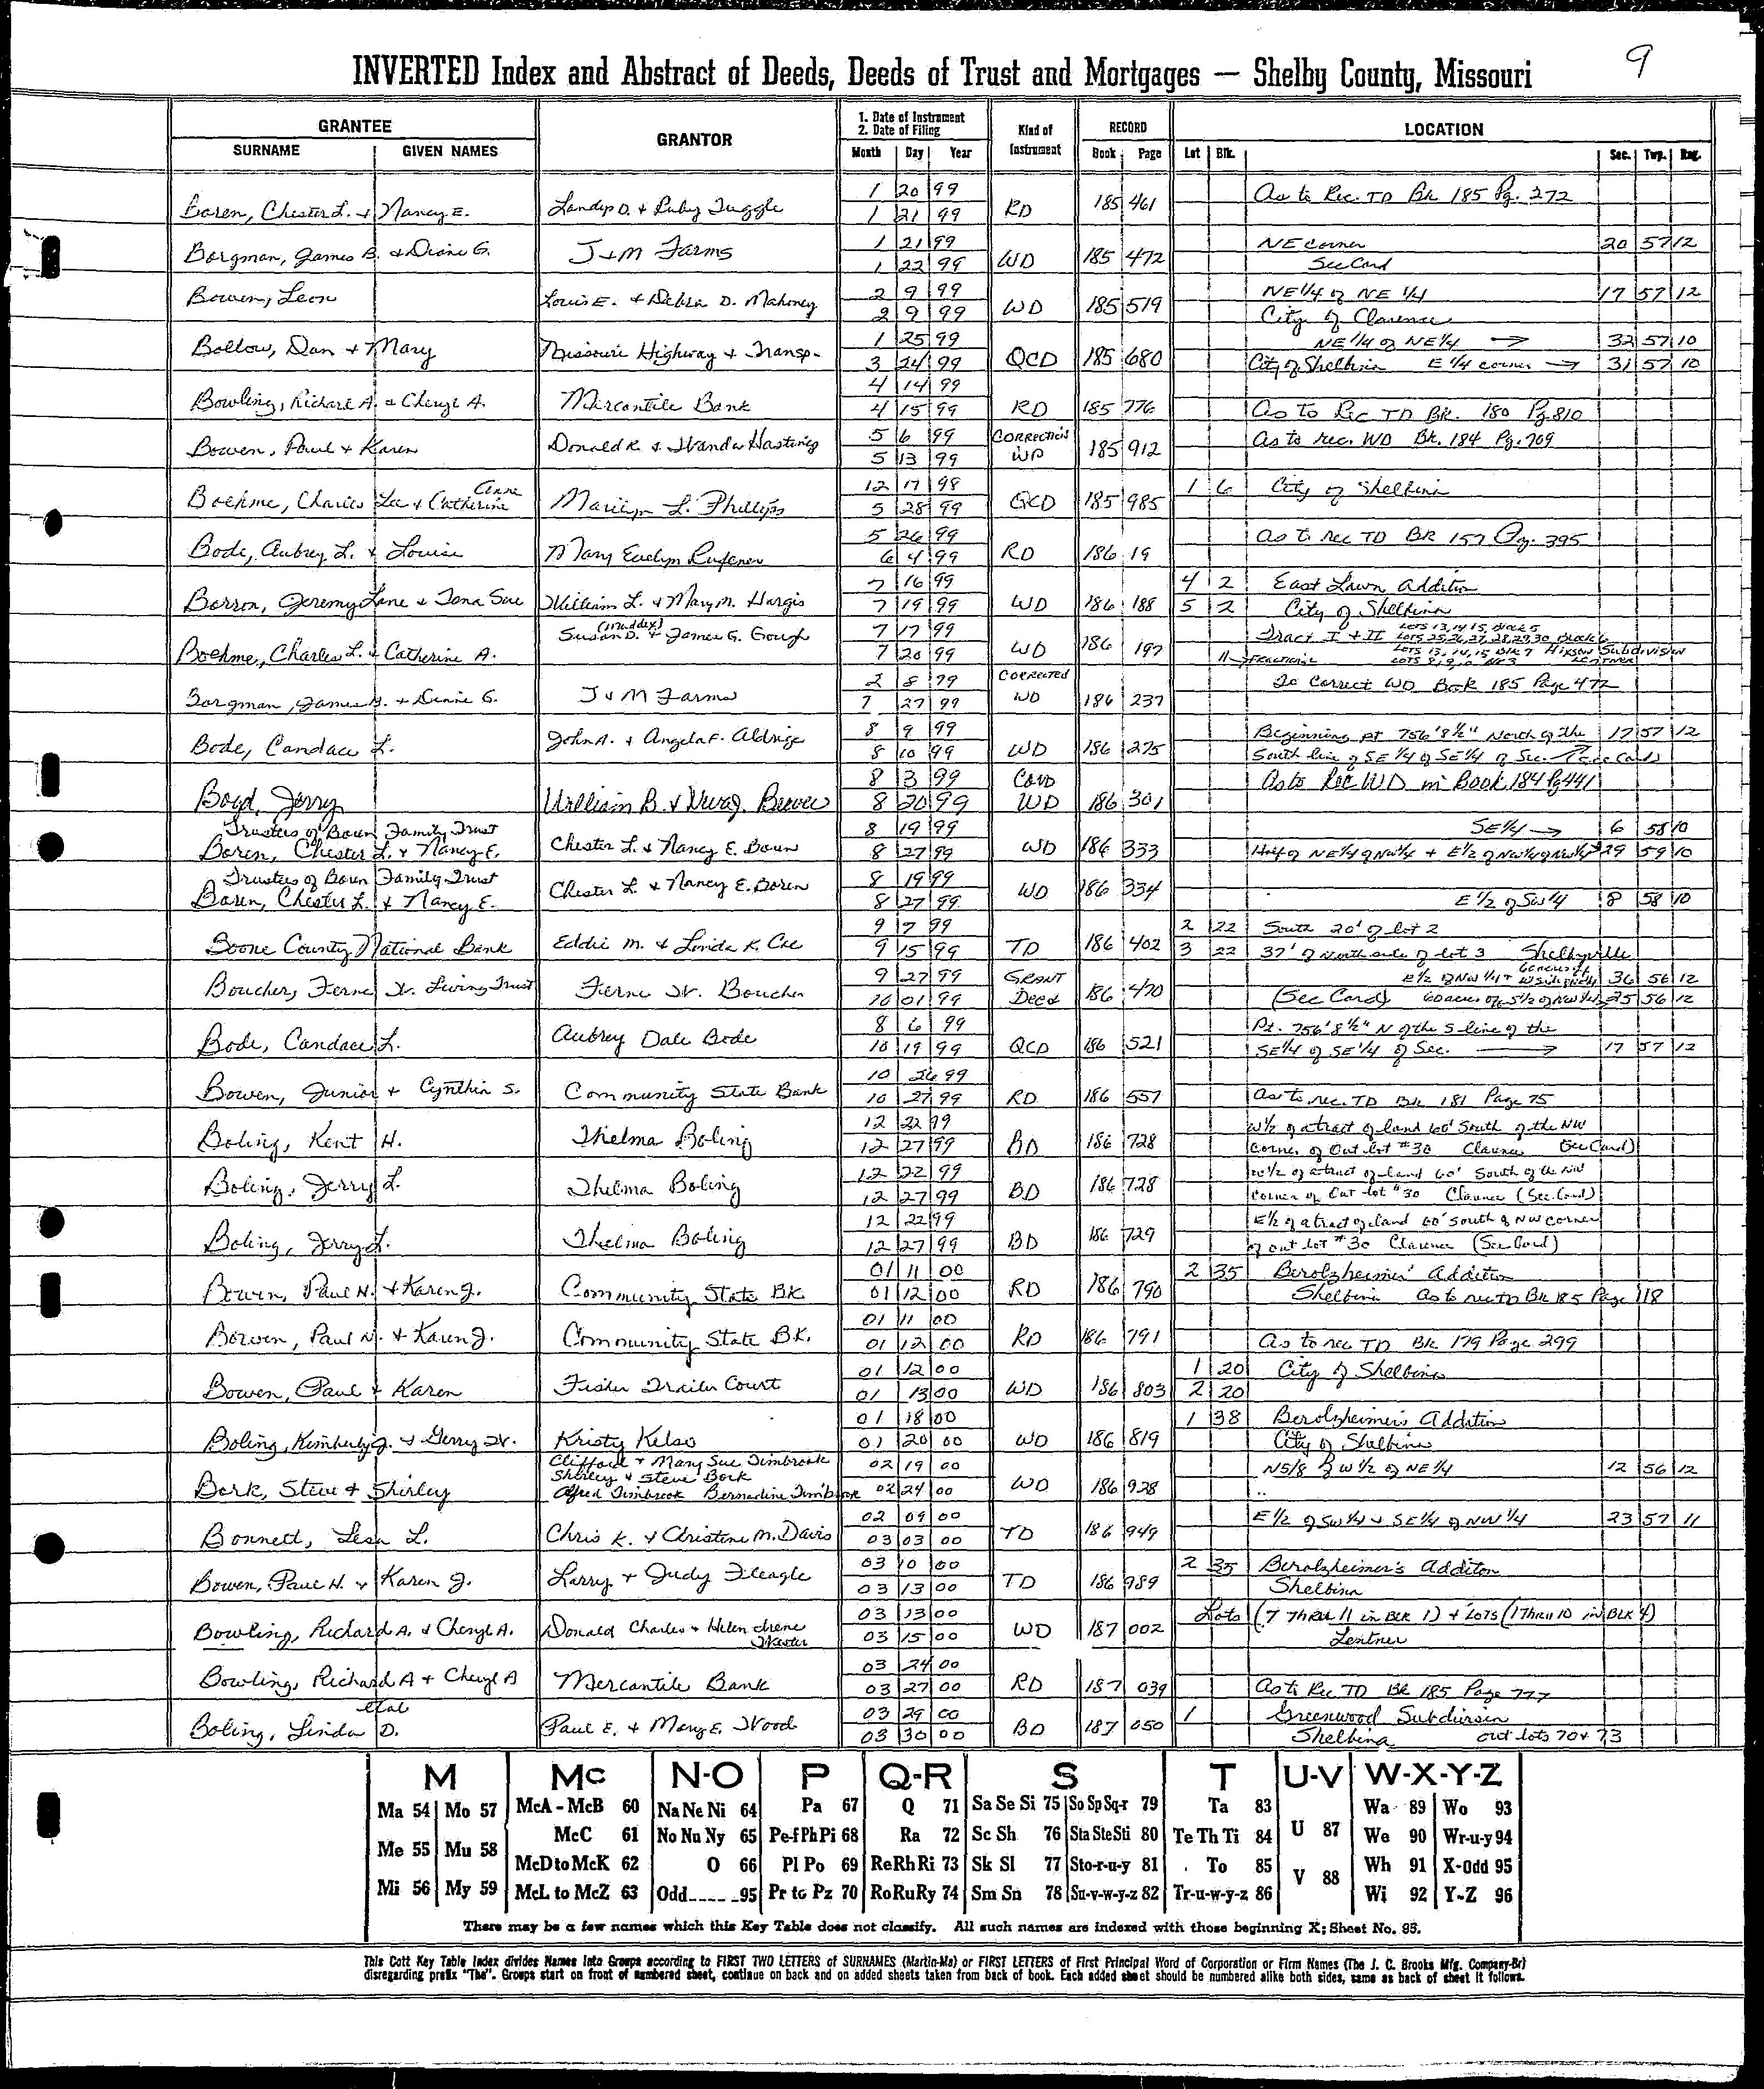 9
INVERTED Index and Abstract of Deeds, Deeds of Trust and Mortgages — Shelby County, Missouri
GRANTEE GRANTOR 1. Date of Instrument Kind of RECORD LOCATION
2. Date of Filing
SURNAME GIVEN NAMES Month Day Year Instrument Book Page Lot Blk. Sec. Twp. Rng.
1 20 99 As to Rec. TD Bk 185 Pg. 272
Boren, Chester L. + Nancy E. Landip D. & Ruby Tuggle 1 21 99 RD 185 461
1 21 99 NE corner 20 57 12
Borgman, James B. + Diane G. J+M Farms 1 22 99 WD 185 472 See Card
Bowen, Leon Louis E. + Debra D. Mahoney 2 9 99 WD 185 519 NE 1/4 of NE 1/4 17 57 12
2 9 99 City of Clarence
1 25 99 NE 1/4 of NE 1/4 → 32 57 10
Bollow, Dan + Mary Missouri Highway + Transp. 3 24 99 QCD 185 680 City of Shelbina E 1/4 corner → 31 57 10
4 14 99
Bowling, Richard A. & Cheryl A. Mercantile Bank 4 15 99 RD 185 776 As to Rec TD Bk. 180 Pg. 810
5 6 99 CORRECTION As to rec. WD Bk. 184 Pg. 709
Bowen, Paul + Karen Donald R. & Wanda Hastings 5 13 99 WD 185 912
Anne 12 17 98 1 6 City of Shelbina
Boehme, Charles Lee + Catherine Marilyn L. Phillips 5 28 99 QCD 185 985
5 26 99 As to rec TD BK 157 Pg. 395
Bode, Aubrey L. & Louise Mary Evelyn 6 4 99 RD 186 19
7 16 99 4 2 East Lawn Addition
Borron, Jeremy Lane + Tona Sue William L. + Mary M. Hargis 7 19 99 WD 186 188 5 2 City of Shelbina
(Maddex) 7 17 99 LOTS 13, 14, 15, Block 5
Susan D. + James G. Gough Tract I + II LOTS 25, 26, 27, 28, 29, 30 Block 6
Boehme, Charles L. & Catherine A. 7 20 99 WD 186 197 LOTS 13, 14, 15 Blk 7 Hixson Subdivision
11 → FRACTIONAL LOTS 8, 9, 10 LENTNER
2 8 99 CORRECTED To Correct WD Book 185 Page 472
Borgman, James B. + Diane G. J + M Farms 7 27 99 WD 186 237
8 9 99 Beginning pt 756'8½" North of the 17 57 12
Bode, Candace L. John A. + Angela F. Aldrige 8 10 99 WD 186 275 South line of SE 1/4 of SE 1/4 of Sec. (See Card)
8 3 99 Corr As to Rec WD in Book 184 Pg 441
Boyd, Jerry William B. & Beaver 8 20 99 WD 186 301
Trustees of Boren Family Trust 8 19 99 SE 1/4 → 6 58 10
Boren, Chester L. + Nancy E. Chester L. & Nancy E. Boren 8 27 99 WD 186 333 NE 1/4 of NW 1/4 + E 1/2 of NW 1/4 of NW 1/4 29 59 10
Trustees of Boren Family Trust 8 19 99
Boren, Chester L. + Nancy E. Chester L. + Nancy E. Boren 8 27 99 WD 186 334 E 1/2 of SW 1/4 8 58 10
9 7 99 2 22 South 20' of lot 2
Boone County National Bank Eddie M. & Linda K. Coe 9 15 99 TD 186 402 3 22 37' of North side of lot 3 Shelbyville
9 27 99 GRANT E 1/2 of NW 1/4 + 36 56 12
Boucher, Ferne W. Living Trust Ferne W. Boucher 10 01 99 Deed 186 470 (See Card) 60 acres off S 1/2 of NW 1/4 25 56 12
8 6 99 Pt. 756'8½" N of the S line of the
Bode, Candace L. Aubrey Dale Bode 10 19 99 QCD 186 521 SE 1/4 of SE 1/4 of Sec. → 17 57 12
10 26 99
Bowen, Junior + Cynthia S. Community State Bank 10 27 99 RD 186 557 As to rec. TD Bk 181 Page 75
12 22 99 W 1/2 of a tract of land 60' South of the NW
Boling, Kent H. Thelma Boling 12 27 99 BD 186 728 corner of Out lot #30 Clarence (See Card)
12 22 99 W 1/2 of a tract of land 60' South of the NW
Boling, Jerry L. Thelma Boling 12 27 99 BD 186 728 corner of Out lot #30 Clarence (See Card)
12 22 99 E 1/2 of a tract of land 60' South of NW corner
Boling, Jerry L. Thelma Boling 12 27 99 BD 186 729 of out lot #30 Clarence (See Card)
01 11 00 2 35 Berolzheimer' Addition
Bowen, Paul H. + Karen J. Community State BK. 01 12 00 RD 186 790 Shelbina As to rec TD Bk 185 Page 118
01 11 00
Bowen, Paul N. + Karen J. Community State BK. 01 12 00 RD 186 791 As to rec TD Bk. 179 Page 299
01 12 00 1 20 City of Shelbina
Bowen, Paul + Karen Fisher Trailer Court 01 13 00 WD 186 803 2 20
01 18 00 1 38 Berolzheimer's Addition
Boling, Kimberly J. + Gerry W. Kristy Kelso 01 20 00 WD 186 819 City of Shelbina
Clifford + Mary Sue Timbrook 02 19 00 N 5/8 of W 1/2 of NE 1/4 12 56 12
Shirley + Steve Bork
Bork, Steve + Shirley Alfred Timbrook Bernadine Timbrook 02 24 00 WD 186 928
02 09 00 E 1/2 of SW 1/4 + SE 1/4 of NW 1/4 23 57 11
Bonnett, Lesa L. Chris K. + Christine M. Davis 03 03 00 TD 186 949
03 10 00 2 35 Berolzheimer's Additon
Bowen, Paul H. + Karen J. Larry + Judy Fleagle 03 13 00 TD 186 989 Shelbina
03 13 00 Lots (7 THRU 11 in BLK 1) + LOTS (1 Thru 10 in BLK 4)
Bowling, Richard A. + Cheryl A. Donald Charles + Helen Irene 03 15 00 WD 187 002 Lentner
03 24 00
Bowling, Richard A + Cheryl A Mercantile Bank 03 27 00 RD 187 039 As to Rec TD Bk 185 Page 777
etal 03 29 00 1 Greenwood Subdivision
Boling, Linda D. Paul E. & Mary E. Wood 03 30 00 BD 187 050 Shelbina out lots 70 + 73
M Mc N-O P Q-R S T U-V W-X-Y-Z
Ma 54 Mo 57 McA - McB 60 Na Ne Ni 64 Pa 67 Q 71 Sa Se Si 75 So Sp Sq-r 79 Ta 83 U 87 Wa 89 Wo 93
Me 55 Mu 58 McC 61 No Nu Ny 65 Pe-f Ph Pi 68 Ra 72 Sc Sh 76 Sta Ste Sti 80 Te Th Ti 84 We 90 Wr-u-y 94
McD to McK 62 O 66 Pl Po 69 Re Rh Ri 73 Sk Sl 77 Sto-r-u-y 81 To 85 V 88 Wh 91 X-Odd 95
Mi 56 My 59 McL to McZ 63 Odd 95 Pr to Pz 70 Ro Ru Ry 74 Sm Sn 78 Su-v-w-y-z 82 Tr-u-w-y-z 86 Wi 92 Y-Z 96
There may be a few names which this Key Table does not classify. All such names are indexed with those beginning X; Sheet No. 95.
This Cott Key Table Index divides Names Into Groups according to FIRST TWO LETTERS of SURNAMES (Martin-Ma) or FIRST LETTERS of First Principal Word of Corporation or Firm Names (The J. C. Brooks Mfg. Company-Br)
disregarding prefix "The". Groups start on front of numbered sheet, continue on back and on added sheets taken from back of book. Each added sheet should be numbered alike both sides, same as back of sheet it follows.